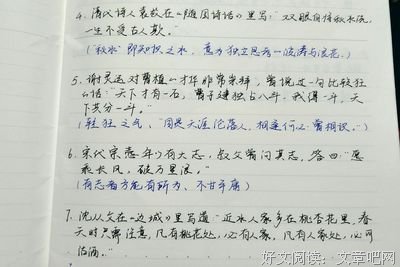 4. 清代诗人袁枚在《随园诗话》里写:“双眼自将秋水洗,
一生不受古人欺。
(“秋水”即知识之水,意为独立思考的波涛与浪花。)
5. 谢灵运对曹植的才华非常崇拜,曾说过一句比较狂
的话:“天下才有一石,曹子建独占八斗,我得一斗,天
下共分一斗。”
(轻狂之气、“同是天涯沦落人,相逢何必曾相识。”)
6. 宋代宗悫年少有大志,叔父曾问其志,答曰“愿
乘长风,破万里浪。”
(有志者方能有所为、不甘平庸)
7. 沈从文在《边城》里写道:“近水人家多在桃杏花里,春
天时只需注意,凡有桃花处,必有人家,凡有人家处,必可
沽酒。”
好文阅读:文章吧网